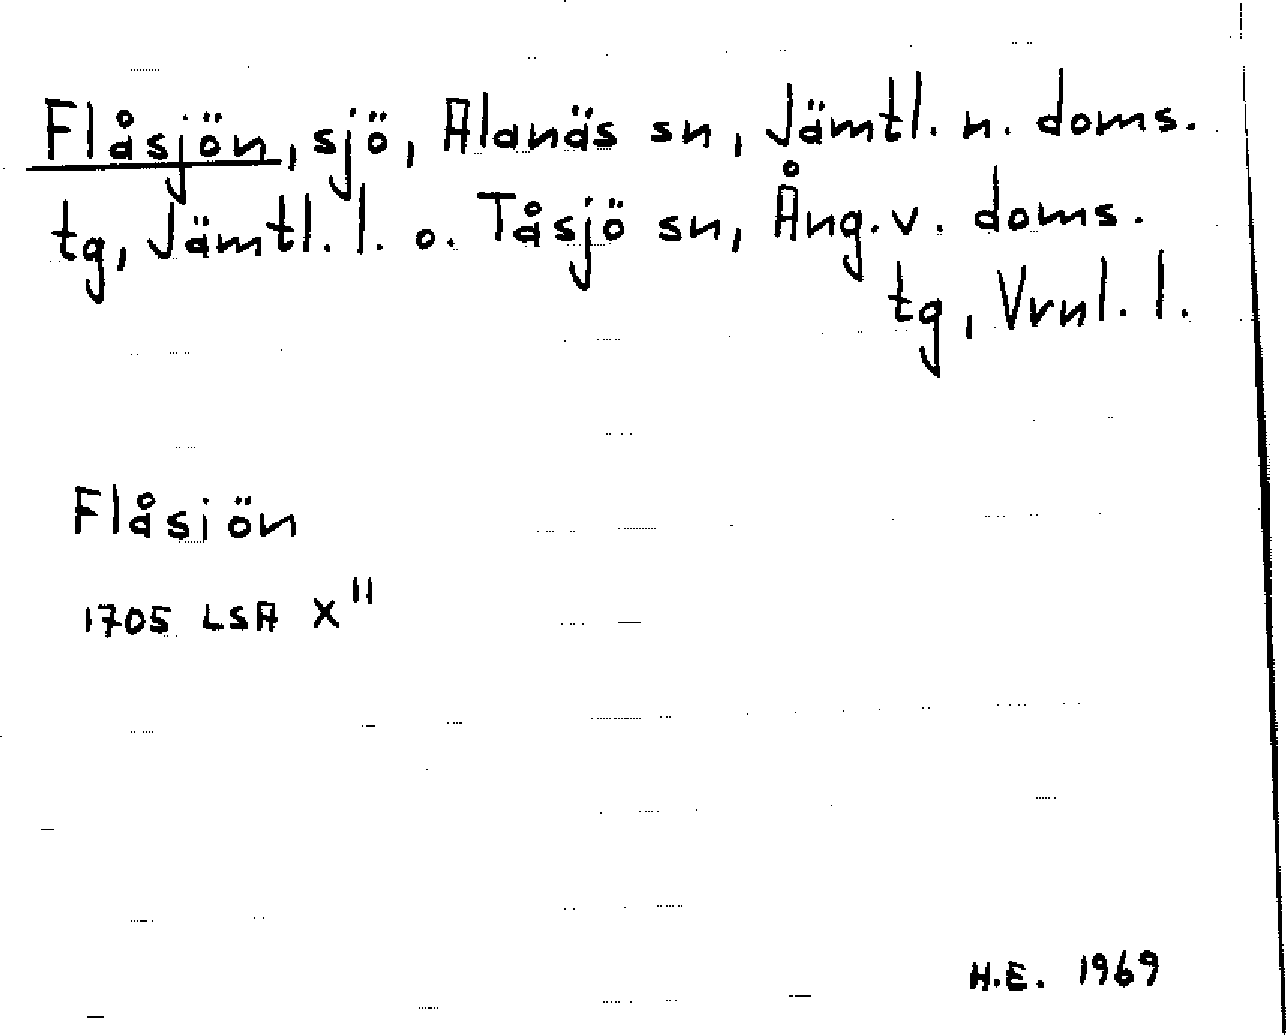 Flåsjön, sjö, Alanäs sn, Jämtl. n. doms.
tg, Jämtl. l. o. Tåsjö sn, Ång. v. doms.
tg, Vrnl. l.
Flåsiön
1705 LSA X"
H.E. 1969